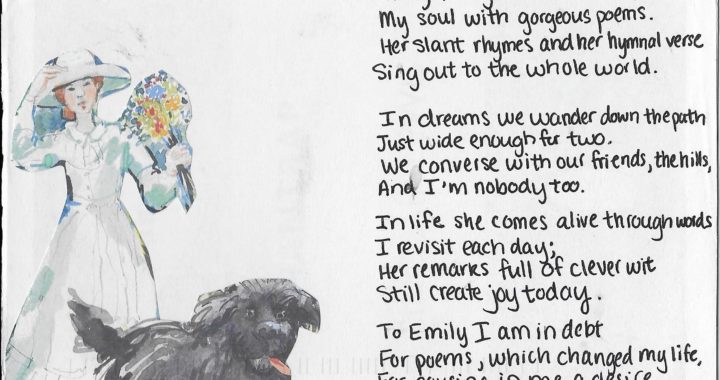 My soul with gorgeous poems.
Her slant rhymes and her hymnal verse
Sing out to the whole world.
In dreams we wander down the path
Just wide enough for two.
We converse with our friends, the hills,
And I'm nobody too.
In life she comes alive through words
I revisit each day;
Her remarks full of clever wit
Still create joy today.
To Emily I am in debt
For poems, which changed my life,
For causing in me a desire